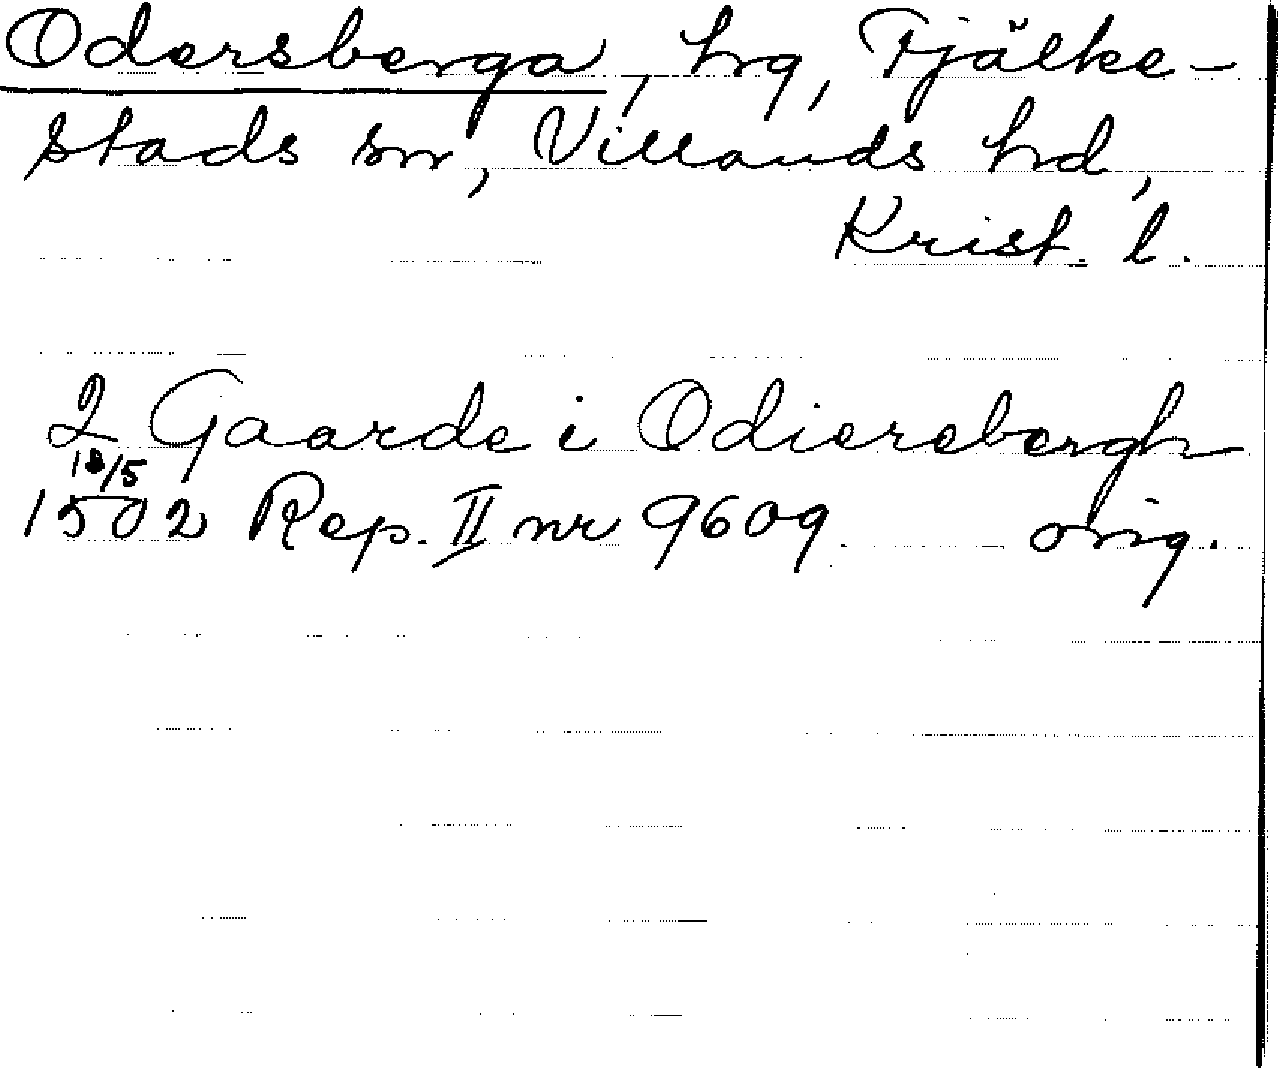 Odersberga, hg, Fjälke-
stads sn, Villands hd,
Krist. l.
2 Gaarde i Odiersbergh
18/5
1502 Rep. II nr 9609. orig.